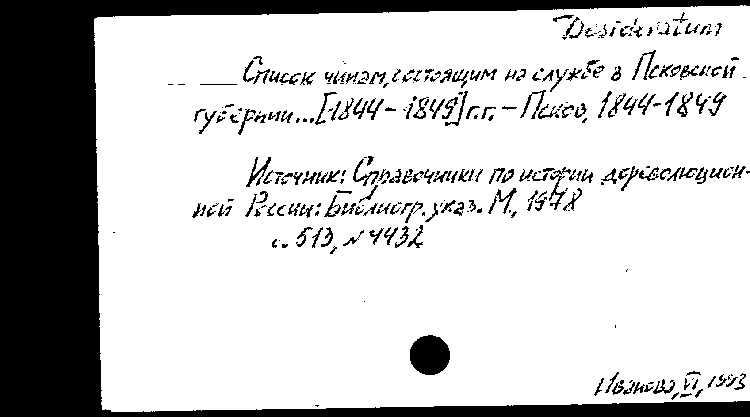 Desideratum
Список чинам, состоящим на службе в Псковской
губернии...[1844-1849]г.г. - Псков, 1844-1849
Источник: Справочники по истории дореволюцион-
ной России: Библиогр. указ. М., 1978
с. 513, №4432
Иванова, VI, 1993